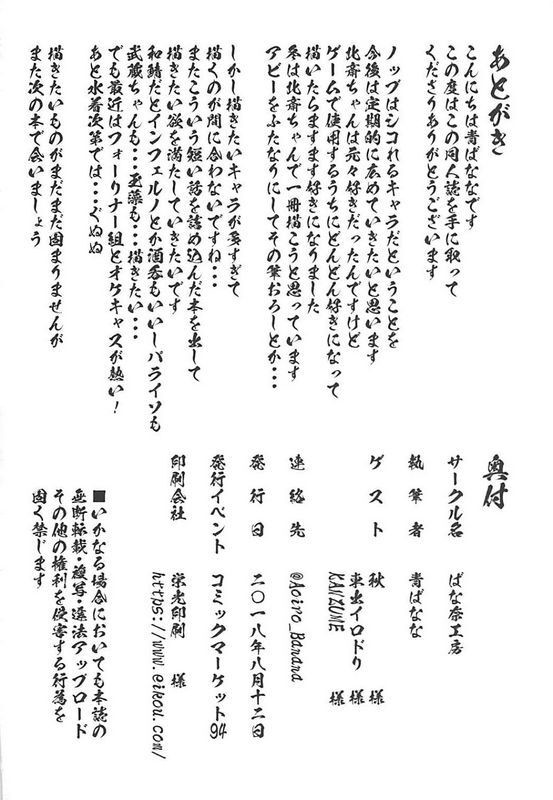 あとがき
こんにちは青ばななです
この度はこの同人誌を手に取って
くださりありがとうございます
ノッブはシコれるキャラだということを
今後は定期的に広めていきたいと思います
北斎ちゃんは元々好きだったんですけど
ゲームで使用するうちにどんどん好きになって
描いたらますます好きになりました
冬は北斎ちゃんで一冊描こうと思っています
アビーをふたなりにしてその筆おろしとか・・・
しかし描きたいキャラが多すぎて
描くのが間に合わないですね・・
またこういう短い話を詰め込んだ本を出して
描きたい欲を満たしていきたいです
和鯖だとインフェルノとか酒呑もいいしパライソも
武蔵ちゃんも・・・巫藻も・・描きたい・・・
でも最近はフォーリナー組とオケキャスが熱い！
あと水着次第では・・・ぐぬぬ
描きたいものがまだまだ固まりませんが
また次の本で会いましょう
奥付
サークル名 ばな奈工房
執筆者 青ばなな
ゲスト 秋 様
車出イロドリ 様
KANZUME 様
連絡先 @Aoiro_Banana
発行日 二〇一八年八月十二日
発行イベント コミックマーケット94
印刷会社 栄光印刷 様
https://www.eikou.com/
■いかなる場合においても本誌の
無断転載・複写・違法アップロード
その他の権利を侵害する行為を
固く禁じます